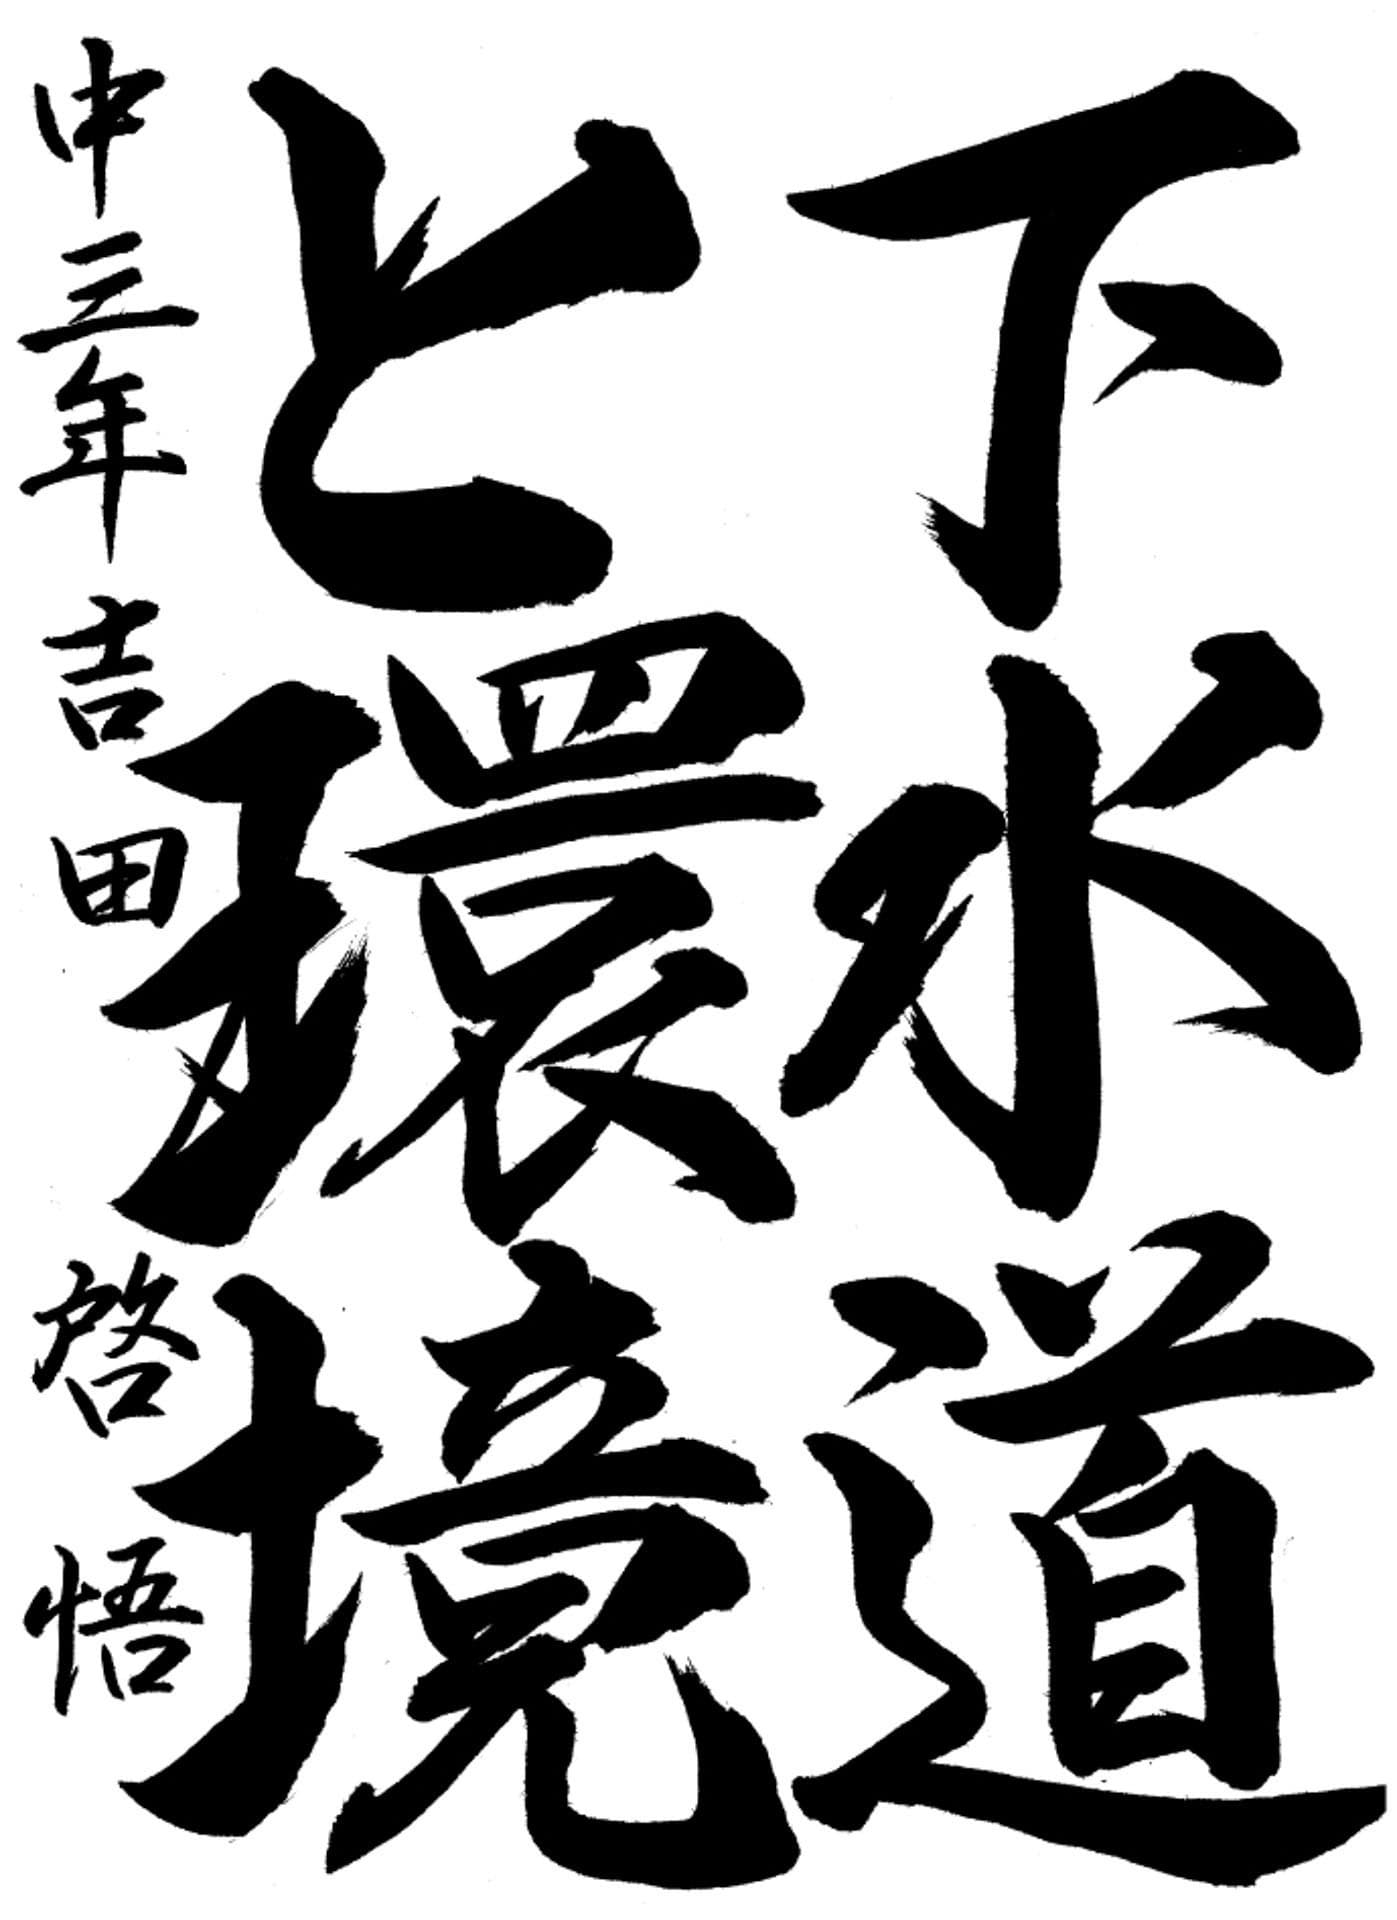 下水道
と環境
中三年 吉田 啓悟